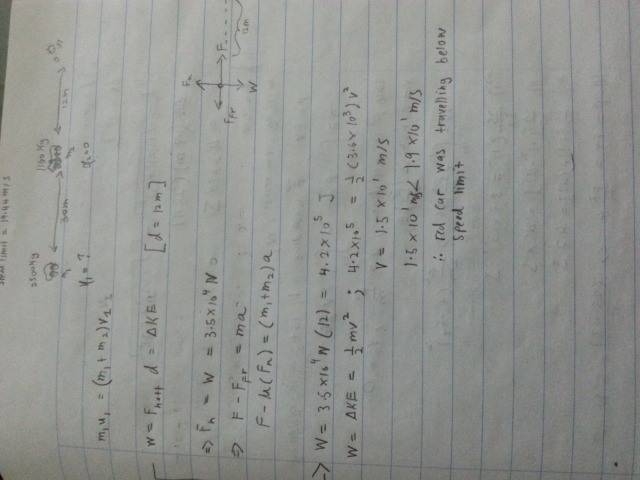 speed limit = 19.44 m/s
2500kg 1100kg
m₁ 30m m₂ 12m
V₁ = ? V₂ = 0
m₁u₁ = (m₁ + m₂)V₂
W = F d = ΔKE [d = 12m]
⇒ Fₙ = W = 3.5×10⁴ N
⇒ F - Ffr = ma
F - μ(Fₙ) = (m₁+m₂)a
Fₙ
F
Ffr
W
12m
→ W = 3.5×10⁴ N (12) = 4.2×10⁵ J
W = ΔKE = ½mv² ; 4.2×10⁵ = ½(3.6×10³)v²
V = 1.5×10¹ m/s
1.5×10¹ m/s < 1.9×10¹ m/s
∴ red car was travelling below
speed limit